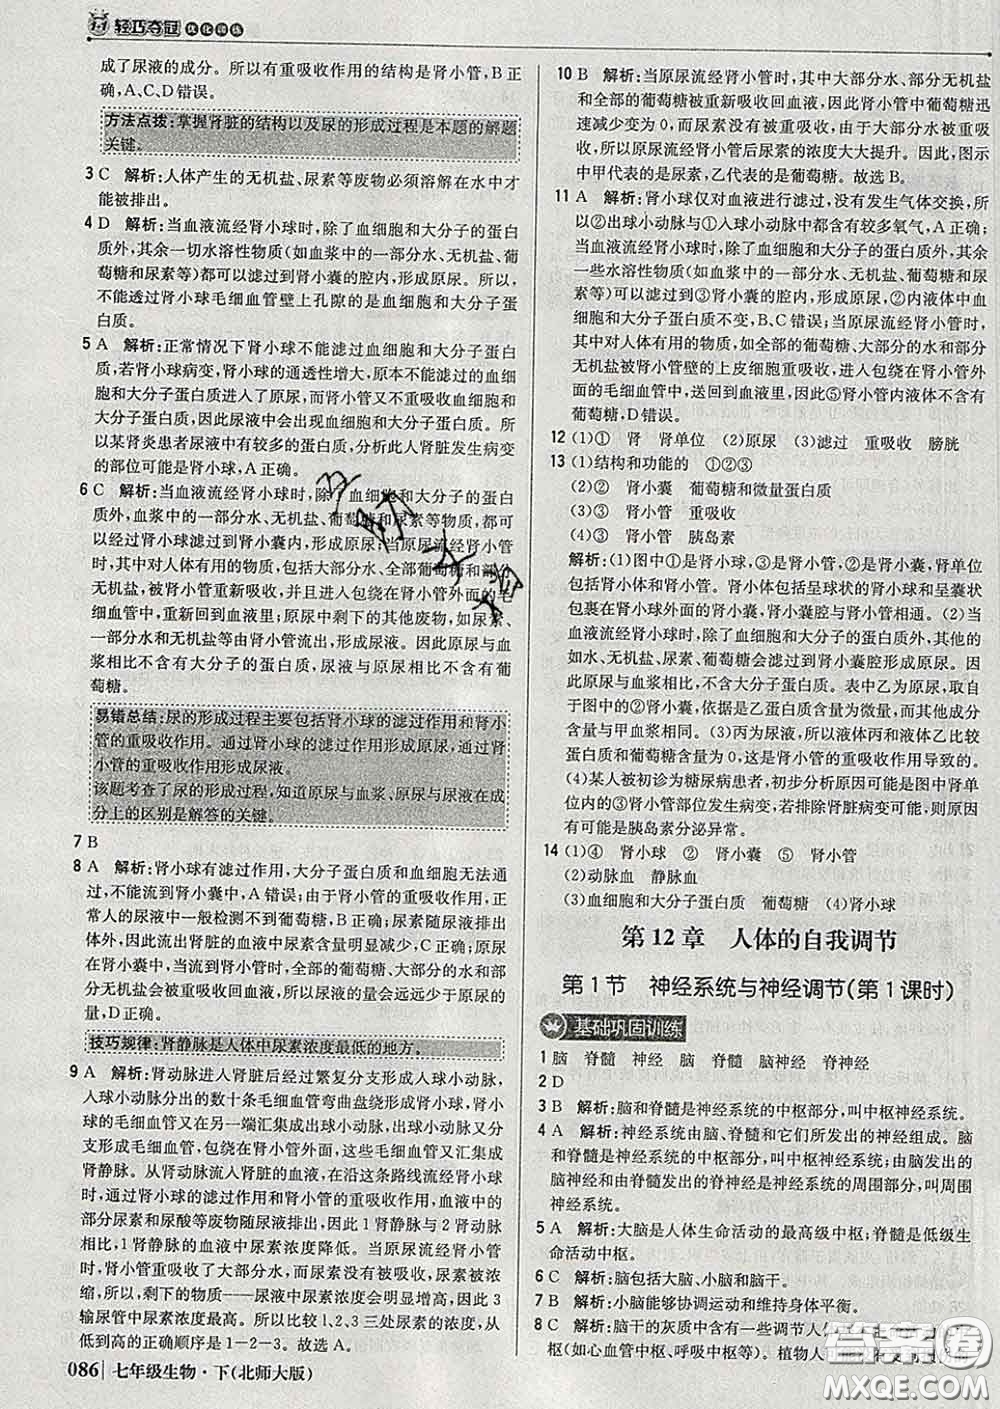 1+1 轻巧夺冠 优化训练
成了尿液的成分。所以有重吸收作用的结构是肾小管,B正
确,A、C、D错误。
方法点拨:掌握肾脏的结构以及尿的形成过程是本题的解题
关键。
3 C 解析:人体产生的无机盐、尿素等废物必须溶解在水中才
能被排出。
4 D 解析:当血液流经肾小球时,除了血细胞和大分子的蛋白
质外,其余一切水溶性物质(如血浆中的一部分水、无机盐、葡
萄糖和尿素等)都可以滤过到肾小囊的腔内,形成原尿。所以,
不能透过肾小球毛细血管壁上孔隙的是血细胞和大分子蛋
白质。
5 A 解析:正常情况下肾小球不能滤过血细胞和大分子蛋白
质,若肾小球病变,肾小球的通透性增大,原本不能滤过的大
分子蛋白质进入了原尿,而肾小管又不能重吸收血细胞和
大分子蛋白质,因此尿液中会出现血细胞和大分子蛋白质。所
以某肾炎患者尿液中有较多的蛋白质,分析此人肾脏发生病变
的部位可能是肾小球,A正确。
6 C 解析:当血液流经肾小球时,除了血细胞和大分子的蛋白
质外,血浆中的一部分水、无机盐、葡萄糖和尿素等物质,都可
以经过肾小球滤过到肾小囊内,形成原尿;当原尿流经肾小管
时,其中对人体有用的物质,包括大部分水、全部葡萄糖和部分
无机盐,被肾小管重新吸收,并且进入包绕在肾小管外面的毛
细血管中,重新回到血液里;原尿中剩下的其他废物,如尿素、
一部分水和无机盐等由肾小管流出,形成尿液。因此原尿与血
浆相比不含有大分子的蛋白质,尿液与原尿相比不含有葡
萄糖。
易错总结:尿的形成过程主要包括肾小球的滤过作用和肾小
管的重吸收作用。通过肾小球的滤过作用形成原尿,通过肾
小管的重吸收作用形成尿液。
该题考查了尿的形成过程,知道原尿与血浆、原尿与尿液在成
分上的区别是解答的关键。
7 B
8 A 解析:肾小球有滤过作用,大分子蛋白质和血细胞无法通
过,不能流到肾小囊中,A错误;由于肾小管的重吸收作用,正
常人的尿液中一般检测不到葡萄糖,B正确;尿素随尿液排出
体外,因此流出肾脏的血液中尿素含量会减少,C正确;原尿
在流经肾小管时,全部的葡萄糖、大部分的水和部分
无机盐被肾小管重新吸收送回到血液中,因此尿的主要成分是
水,D正确。
技巧规律:肾静脉是人体中尿素浓度最低的地方。
9 A 解析:肾动脉进入肾脏后经过繁复分支形成入球小动脉,
入球小动脉分出的数十条毛细血管弯曲盘绕形成肾小球,这些
毛细血管又在另一端汇集成出球小动脉,出球小动脉又分
支形成毛细血管,包绕在肾小管外面,这些毛细血管又汇集成
肾静脉。从肾动脉流入肾脏的血液,在沿这条路线流经肾小球
时,通过肾小球的滤过作用和肾小管的重吸收作用,血液中的
大部分尿素和尿酸等废物随尿液排出,因此1肾静脉与2肾动脉
相比,1肾静脉的血液中尿素浓度降低。当原尿流经肾小管时,
由于肾小管吸收了大部分水,而其中的尿素被浓
缩,所以,剩下的物质——尿液中尿素浓度会明显增高,因此3
输尿管中尿素的浓度最高。所以比较1、2、3三处尿素的浓度,
从低到高的正确顺序是1—2—3。故选A。
10 B 解析:当原尿流经肾小管时,其中大部分水、部分无机盐
和全部的葡萄糖被重新吸收回血液,因此肾小管中葡萄糖迅
速减少变为0,而尿素没有被重吸收,由于大部分水被重吸
收,所以原尿流经肾小管后尿素的浓度大大提升。因此,图示
中甲代表的是尿素,乙代表的是葡萄糖。故选B。
11 A 解析:肾小球仅对血液进行滤过,没有发生气体交换,所
以②出球小动脉与①入球小动脉中都含有较多氧气,A正确;
当流经肾小球时,除了血细胞和大分子的蛋白质外,其余
一些水溶性物质(如血浆中的一部分水、无机盐、葡萄糖和
尿素等)可以滤过到③肾小囊的腔内,形成原尿,②内液体中血
细胞和大分子蛋白质不变,B、C错误;当原尿流经肾小管时,
其中对人体有用的物质,如全部的葡萄糖、大部分的水和部分
无机盐被肾小管壁的上皮细胞重吸收,进入包绕在肾小管外
面的毛细血管中,送回到血液里,因此⑤肾小管内液体不含有
葡萄糖,D错误。
12 (1)① 肾 肾单位 (2)原尿 (3)滤过 重吸收 膀胱
13 (1)结构和功能的 ①②③
(2)② 肾小囊 葡萄糖和微量蛋白质
(3)③ 肾小管 重吸收
(4)③ 肾小管 胰岛素
解析:(1)图中①是肾小球,③是肾小管,②是肾小囊,肾单位
包括肾小体和肾小管。肾小体包括呈球状的肾小球和呈囊状
包裹在肾小球外面的肾小囊,肾小囊腔与肾小管相通。(2)当
血液流经肾小球时,除了血细胞和大分子的蛋白质外,其他的
如水、无机盐、尿素、葡萄糖会滤过到肾小囊腔形成原尿。因
此原尿与血浆相比,不含大分子的蛋白质。表中乙为原尿,取
自于图中的②肾小囊,依据是乙蛋白质含量为微量,而葡萄糖
含量与甲血浆相同。(3)丙为尿液,所以液体丙和液体乙比较
蛋白质和葡萄糖含量为0,这是肾小管的重吸收作用导致的。
(4)某人被初诊为糖尿病患者,初步分析原因可能是图中肾单
位内的③肾小管部位发生病变,若排除肾脏病变可能,则原因
有可能是胰岛素分泌异常。
14 (1)④ 肾小球 ② 肾小囊 ⑤ 肾小管
(2)动脉血 静脉血
(3)血细胞和大分子蛋白质 葡萄糖 (4)肾小球
第12章 人体的自我调节
第1节 神经系统与神经调节(第1课时)
基础巩固训练
1 脑 脊髓 神经 脑 脊髓 脑神经 脊神经
2 D
3 B 解析:脑和脊髓是神经系统的中枢部分,叫中枢神经系统。
4 A 解析:神经系统由脑、脊髓和它们所发出的神经组成。脑和
脊髓是神经系统的中枢部分,叫中枢神经系统;由脑发出的
脑神经和由脊髓发出的脊神经是神经系统的周围部分,叫周围
神经系统。
5 A 解析:大脑是人体生命活动的最高级中枢;脊髓是低级生
命活动中枢。
6 C 解析:脑包括大脑、小脑和脑干。
7 B 解析:小脑能够协调运动和维持身体平衡。
8 C 解析:脑干的灰质中含有一些调节人体
枢(如心血管中枢、呼吸中枢等)。植物人
086 七年级生物·下(北师大版)
答案圈
MXQE.COM